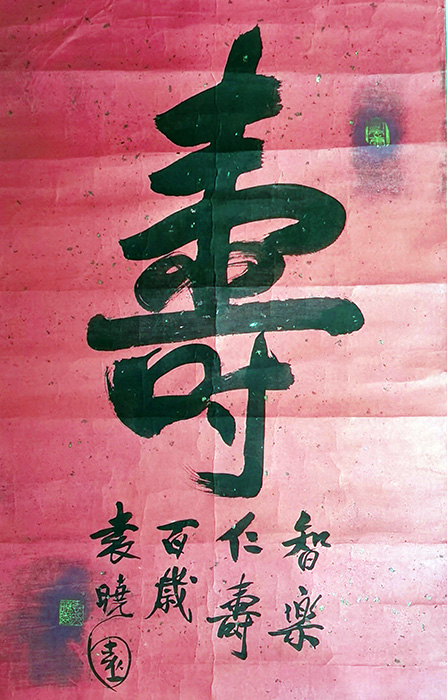 壽
智樂
仁壽
百歲
袁曉
袁